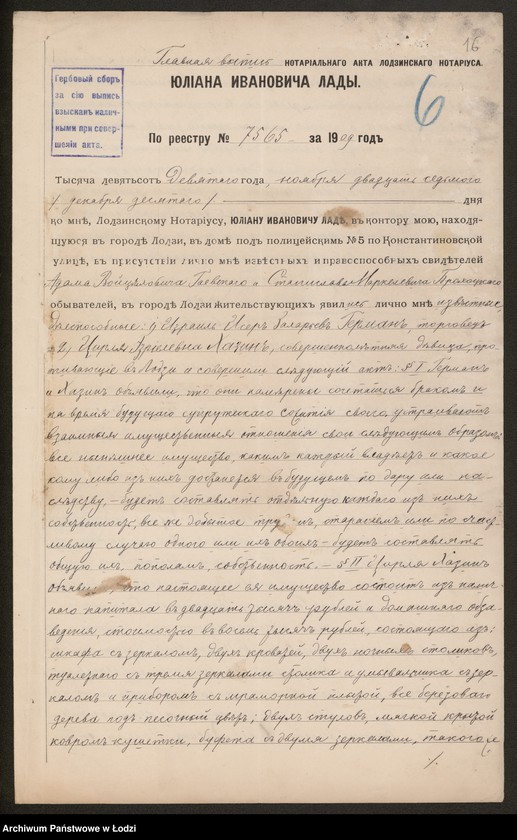 16
Главная выпись НОТАРІАЛЬНАГО АКТА ЛОДЗИНСКАГО НОТАРІУСА.
ЮЛІАНА ИВАНОВИЧА ЛАДЫ.
6
Гербовый сборъ
за сію выпись
взысканъ налич-
ными при совер-
шеніи акта.
По реестру № 7565 за 1909 годъ
Тысяча девятьсотъ Девятаго года, ноября двадцать седьмого
/ декабря десятаго / дня
ко мнѣ, Лодзинскому Нотаріусу, ЮЛІАНУ ИВАНОВИЧУ ЛАДѢ, въ контору мою, находя-
щуюся въ городѣ Лодзи, въ домѣ подъ полицейскимъ №5 по Константиновской
улицѣ, въ присутствіи лично мнѣ извѣстныхъ и правоспособныхъ свидѣтелей
Адама Войцѣховича Гаевскаго и Станислава
обывателей, въ городѣ Лодзи жительствующихъ явились лично мнѣ извѣстные,
дѣеспособные: 1) Израиль Германъ, торговецъ
и 2) Цирля Хазинъ, совершеннолѣтняя дѣвица, про-
живающіе въ Лодзи и совершили слѣдующій актъ: § I Германъ
и Хазинъ объявили, что они намѣрены сочетаться бракомъ и
на время будущаго супружескаго сожитія своего устраиваютъ
взаимныя имущественныя отношенія свои слѣдующимъ образомъ:
все нынѣшнее имущество, какимъ каждый владѣетъ и какое
кому либо изъ нихъ достанется въ будущемъ по дару или на-
слѣдству, - будетъ составлять отдѣльную каждаго изъ нихъ
собственность, все же добытое трудомъ, стараніемъ или по счаст-
ливому случаю одного или ихъ обоихъ - будетъ составлять
общую ихъ, пополамъ, собственность. - § II Цирля Хазинъ
объявила, что настоящее ея имущество состоитъ изъ налич-
наго капитала въ двадцать тысячъ рублей и домашняго обза-
веденія, стоимостью въ восемь тысячъ рублей, состоящаго изъ:
шкафа съ зеркаломъ, двухъ кроватей, двухъ ночныхъ столиковъ,
туалетнаго съ тремя зеркалами столика и умывальника съ зер-
каломъ и приборомъ съ мраморной плитой, все березоваго
дерева подъ песочный цвѣтъ; двухъ стульевъ, мягкой крытой
ковромъ кушетки, буфета съ двумя зеркалами, такого же
./.
Archiwum Państwowe w Łodzi